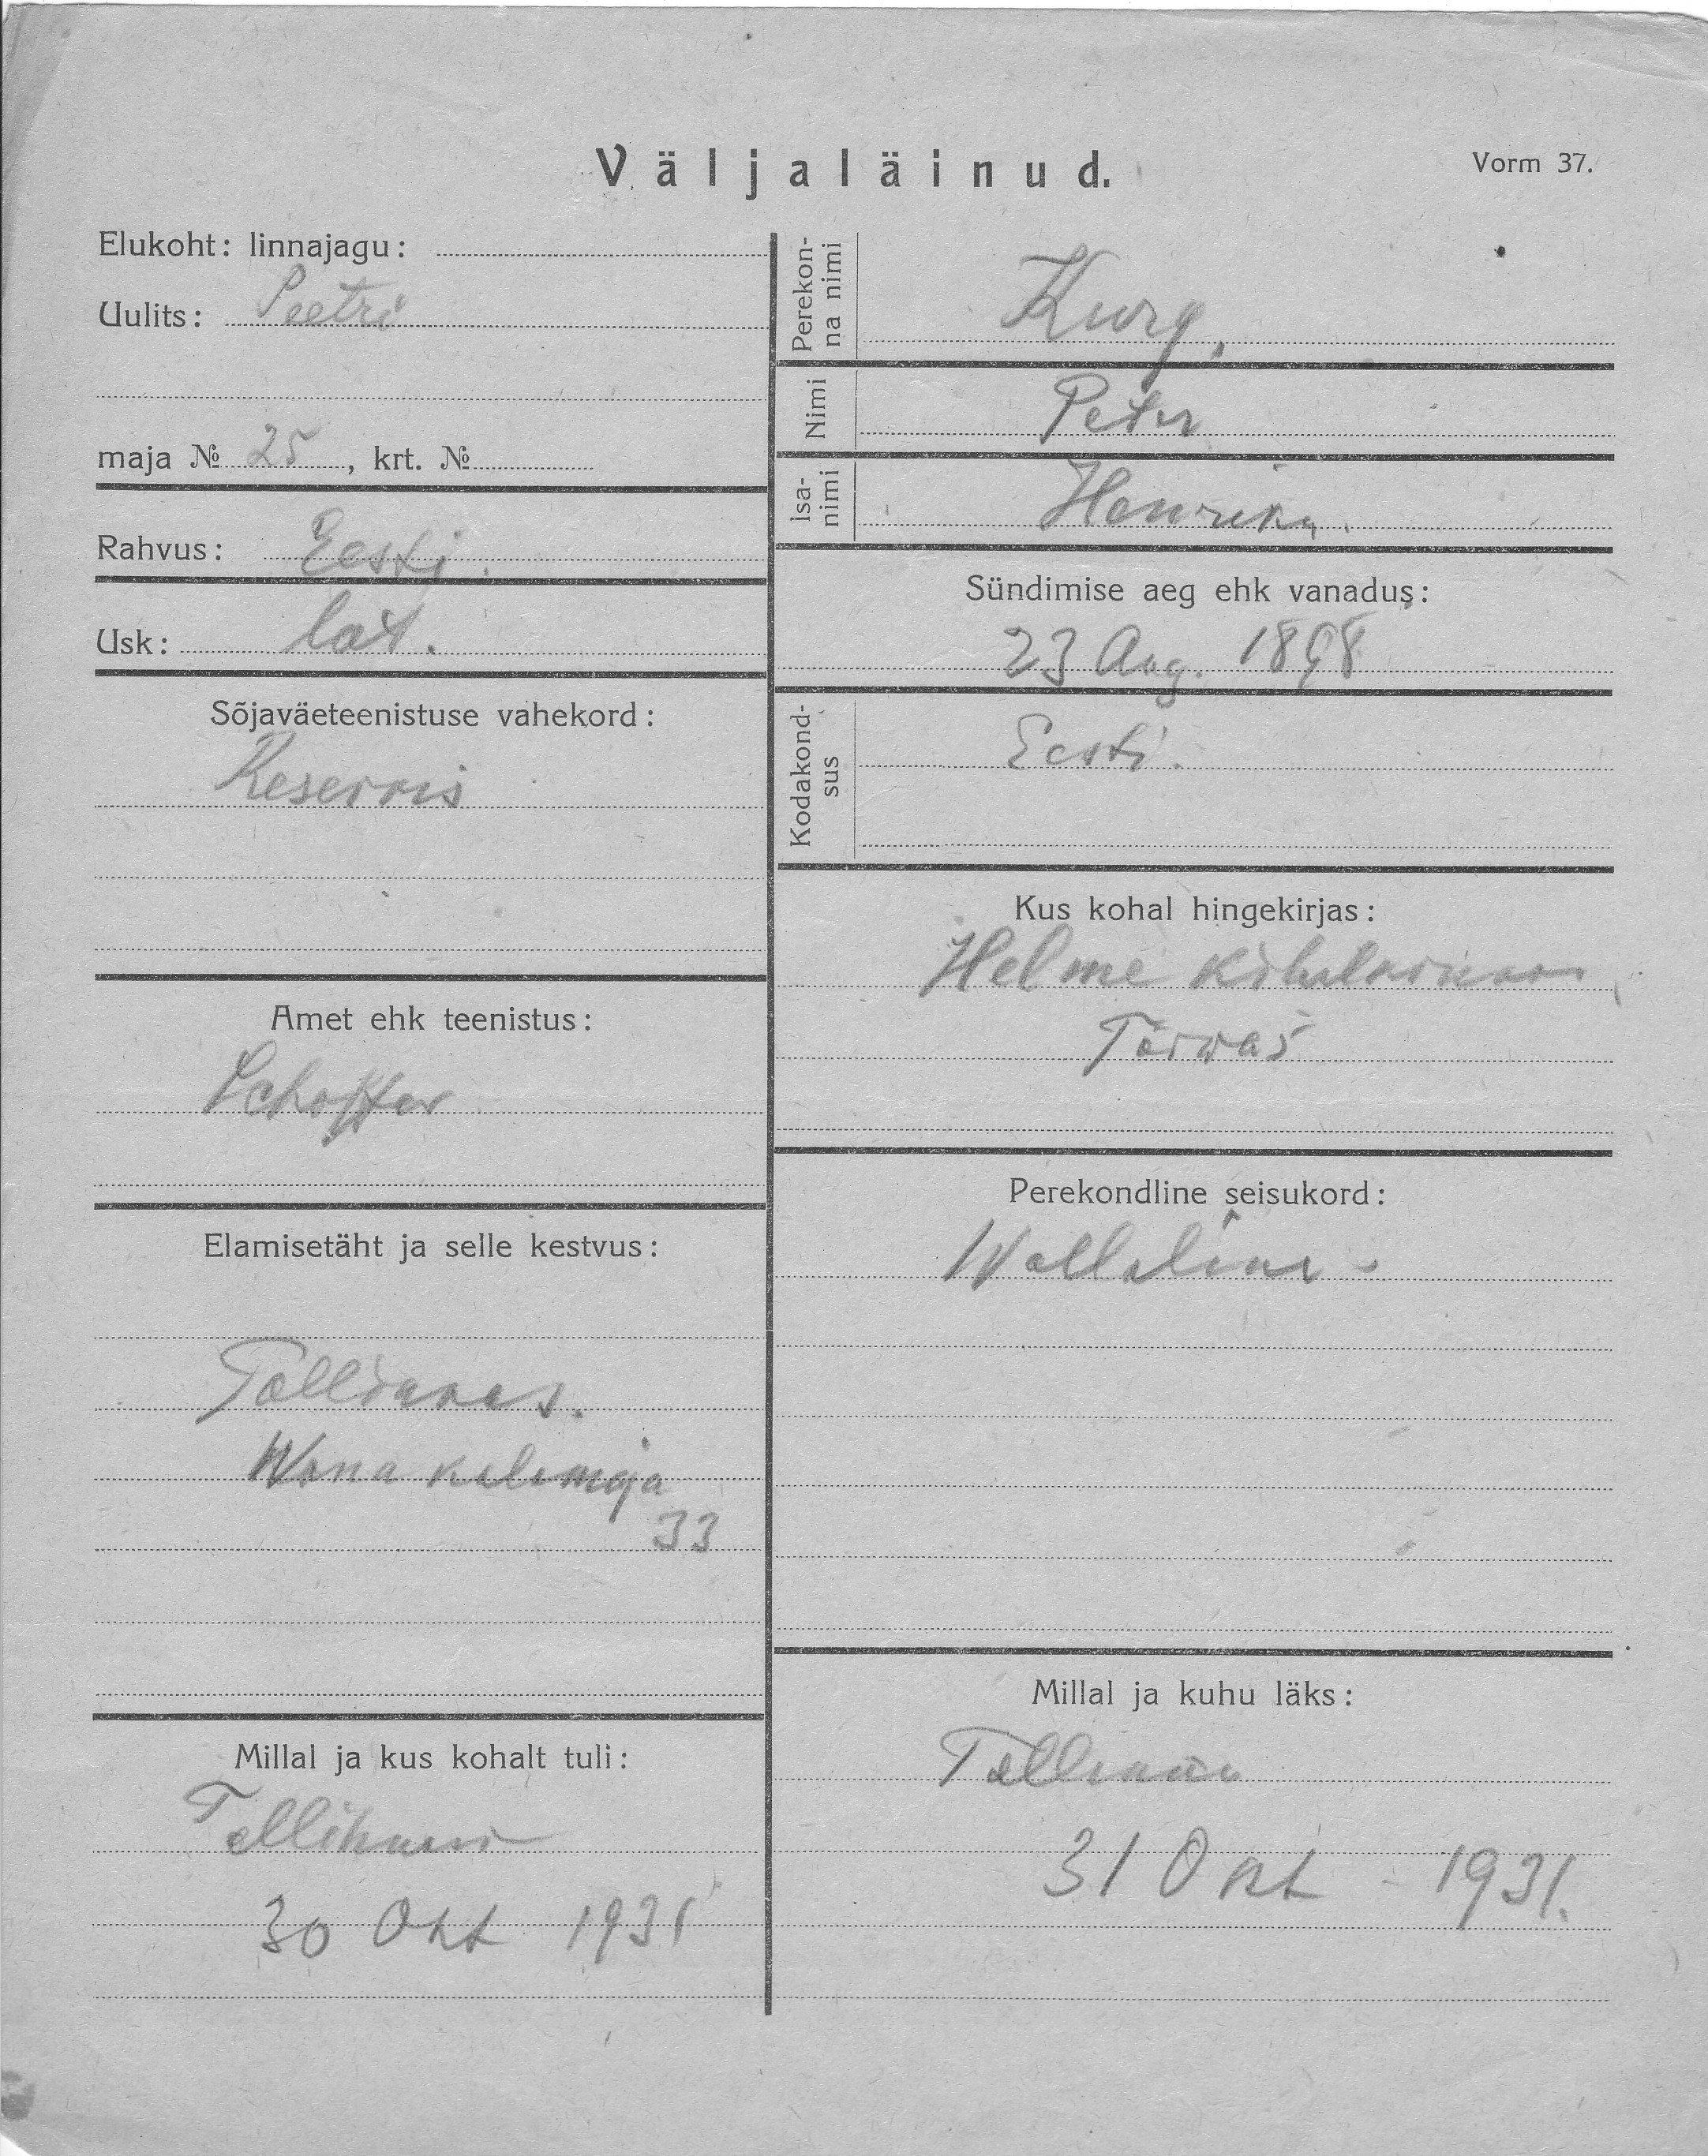 Väljaläinud.
Vorm 37.
Elukoht: linnajagu:
Uulits: Peetri
maja № 25, krt. №
Rahvus: Eesti.
Usk: lut.
Sõjaväeteenistuse vahekord:
Reservis
Amet ehk teenistus:
Schoffer
Elamisetäht ja selle kestvus:
Tallinnas.
Wana kalamaja
33
Millal ja kus kohalt tuli:
Tallinnast
30 Okt 1931
Perekonna nimi
Kurg,
Nimi
Peter
Isanimi
Henriku.
Sündimise aeg ehk vanadus:
23 Aug. 1898
Kodakondsus
Eesti.
Kus kohal hingekirjas:
Helme
Tõrvas
Perekondline seisukord:
Wallaline
Millal ja kuhu läks:
Tallinna
31 Okt - 1931.